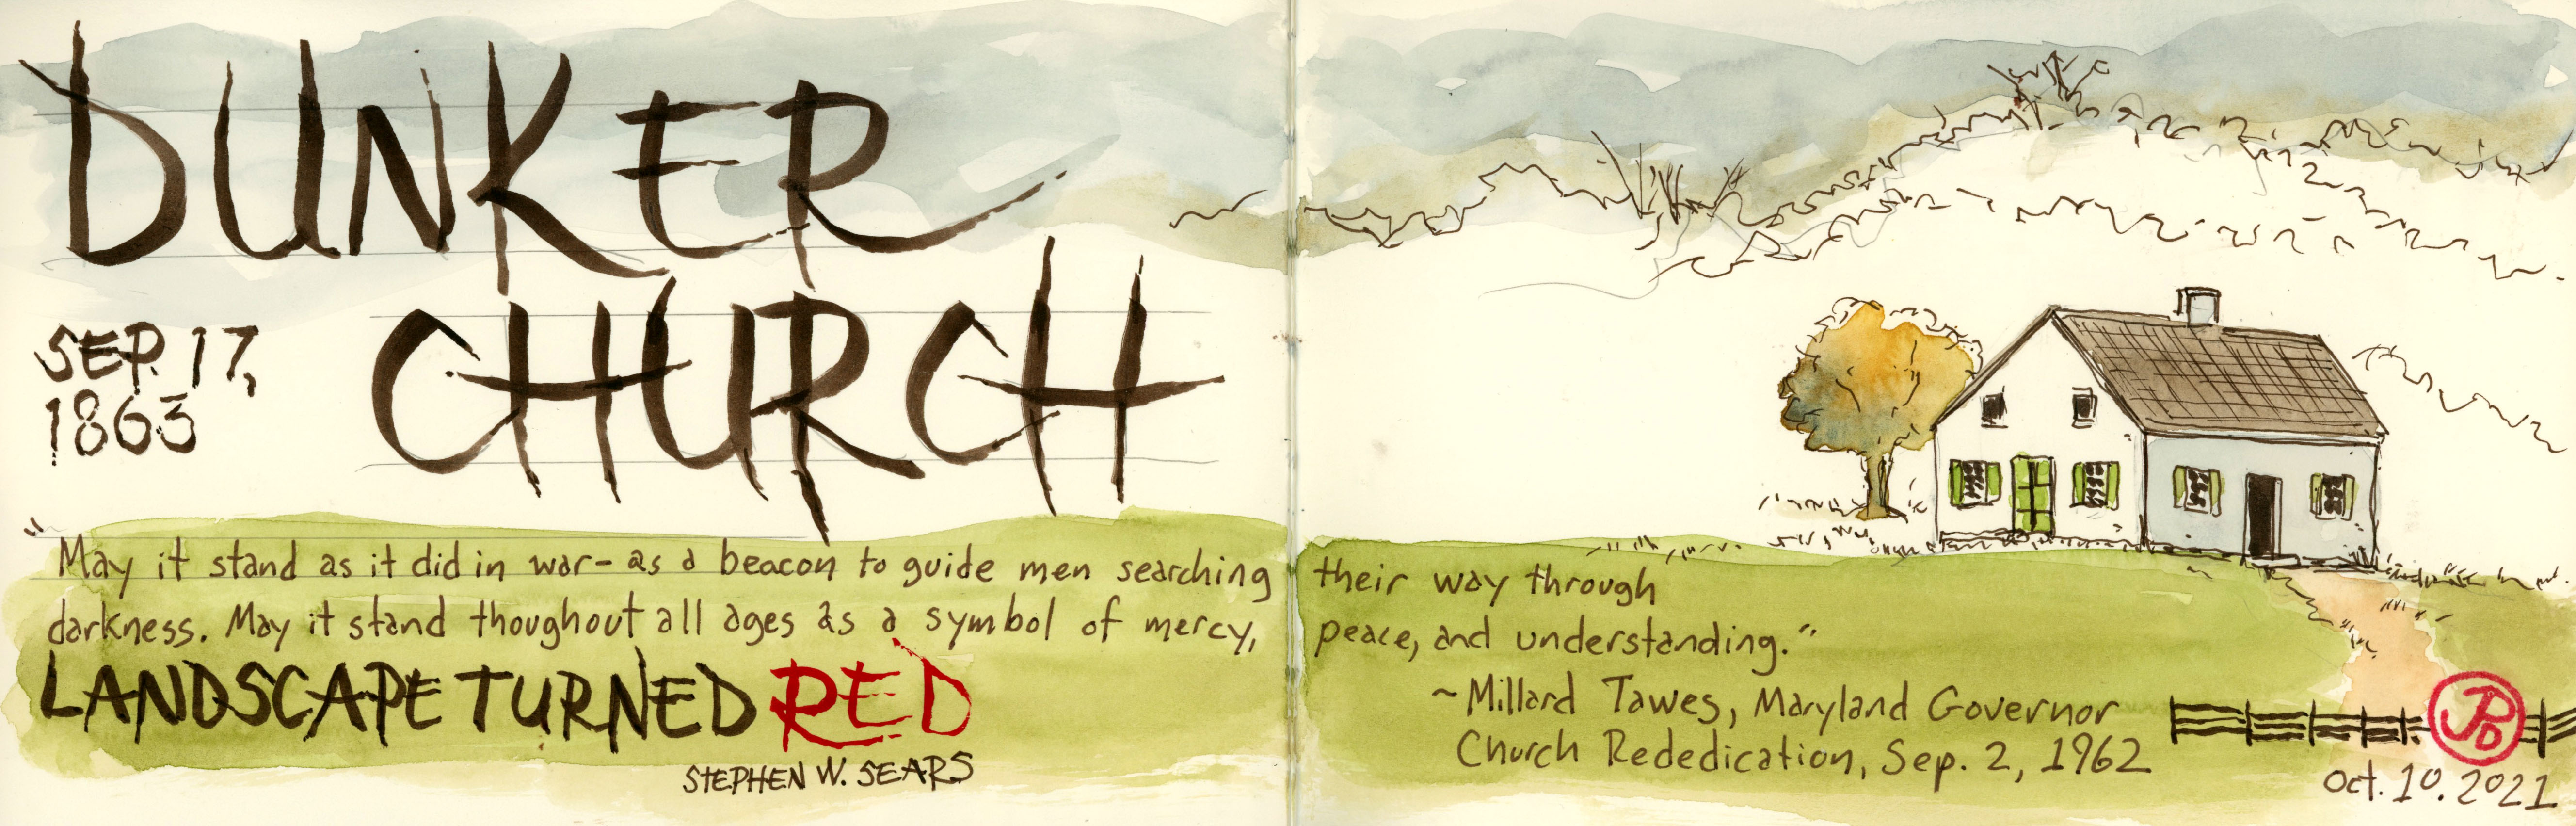 DUNKER
CHURCH
SEP. 17,
1863
"May it stand as it did in war- as a beacon to guide men searching their way through
darkness. May it stand thoughout all ages as a symbol of mercy, peace, and understanding."
LANDSCAPE TURNED RED
STEPHEN W. SEARS
~Millard Tawes, Maryland Governor
Church Rededication, Sep. 2, 1962
JPD
Oct. 10. 2021